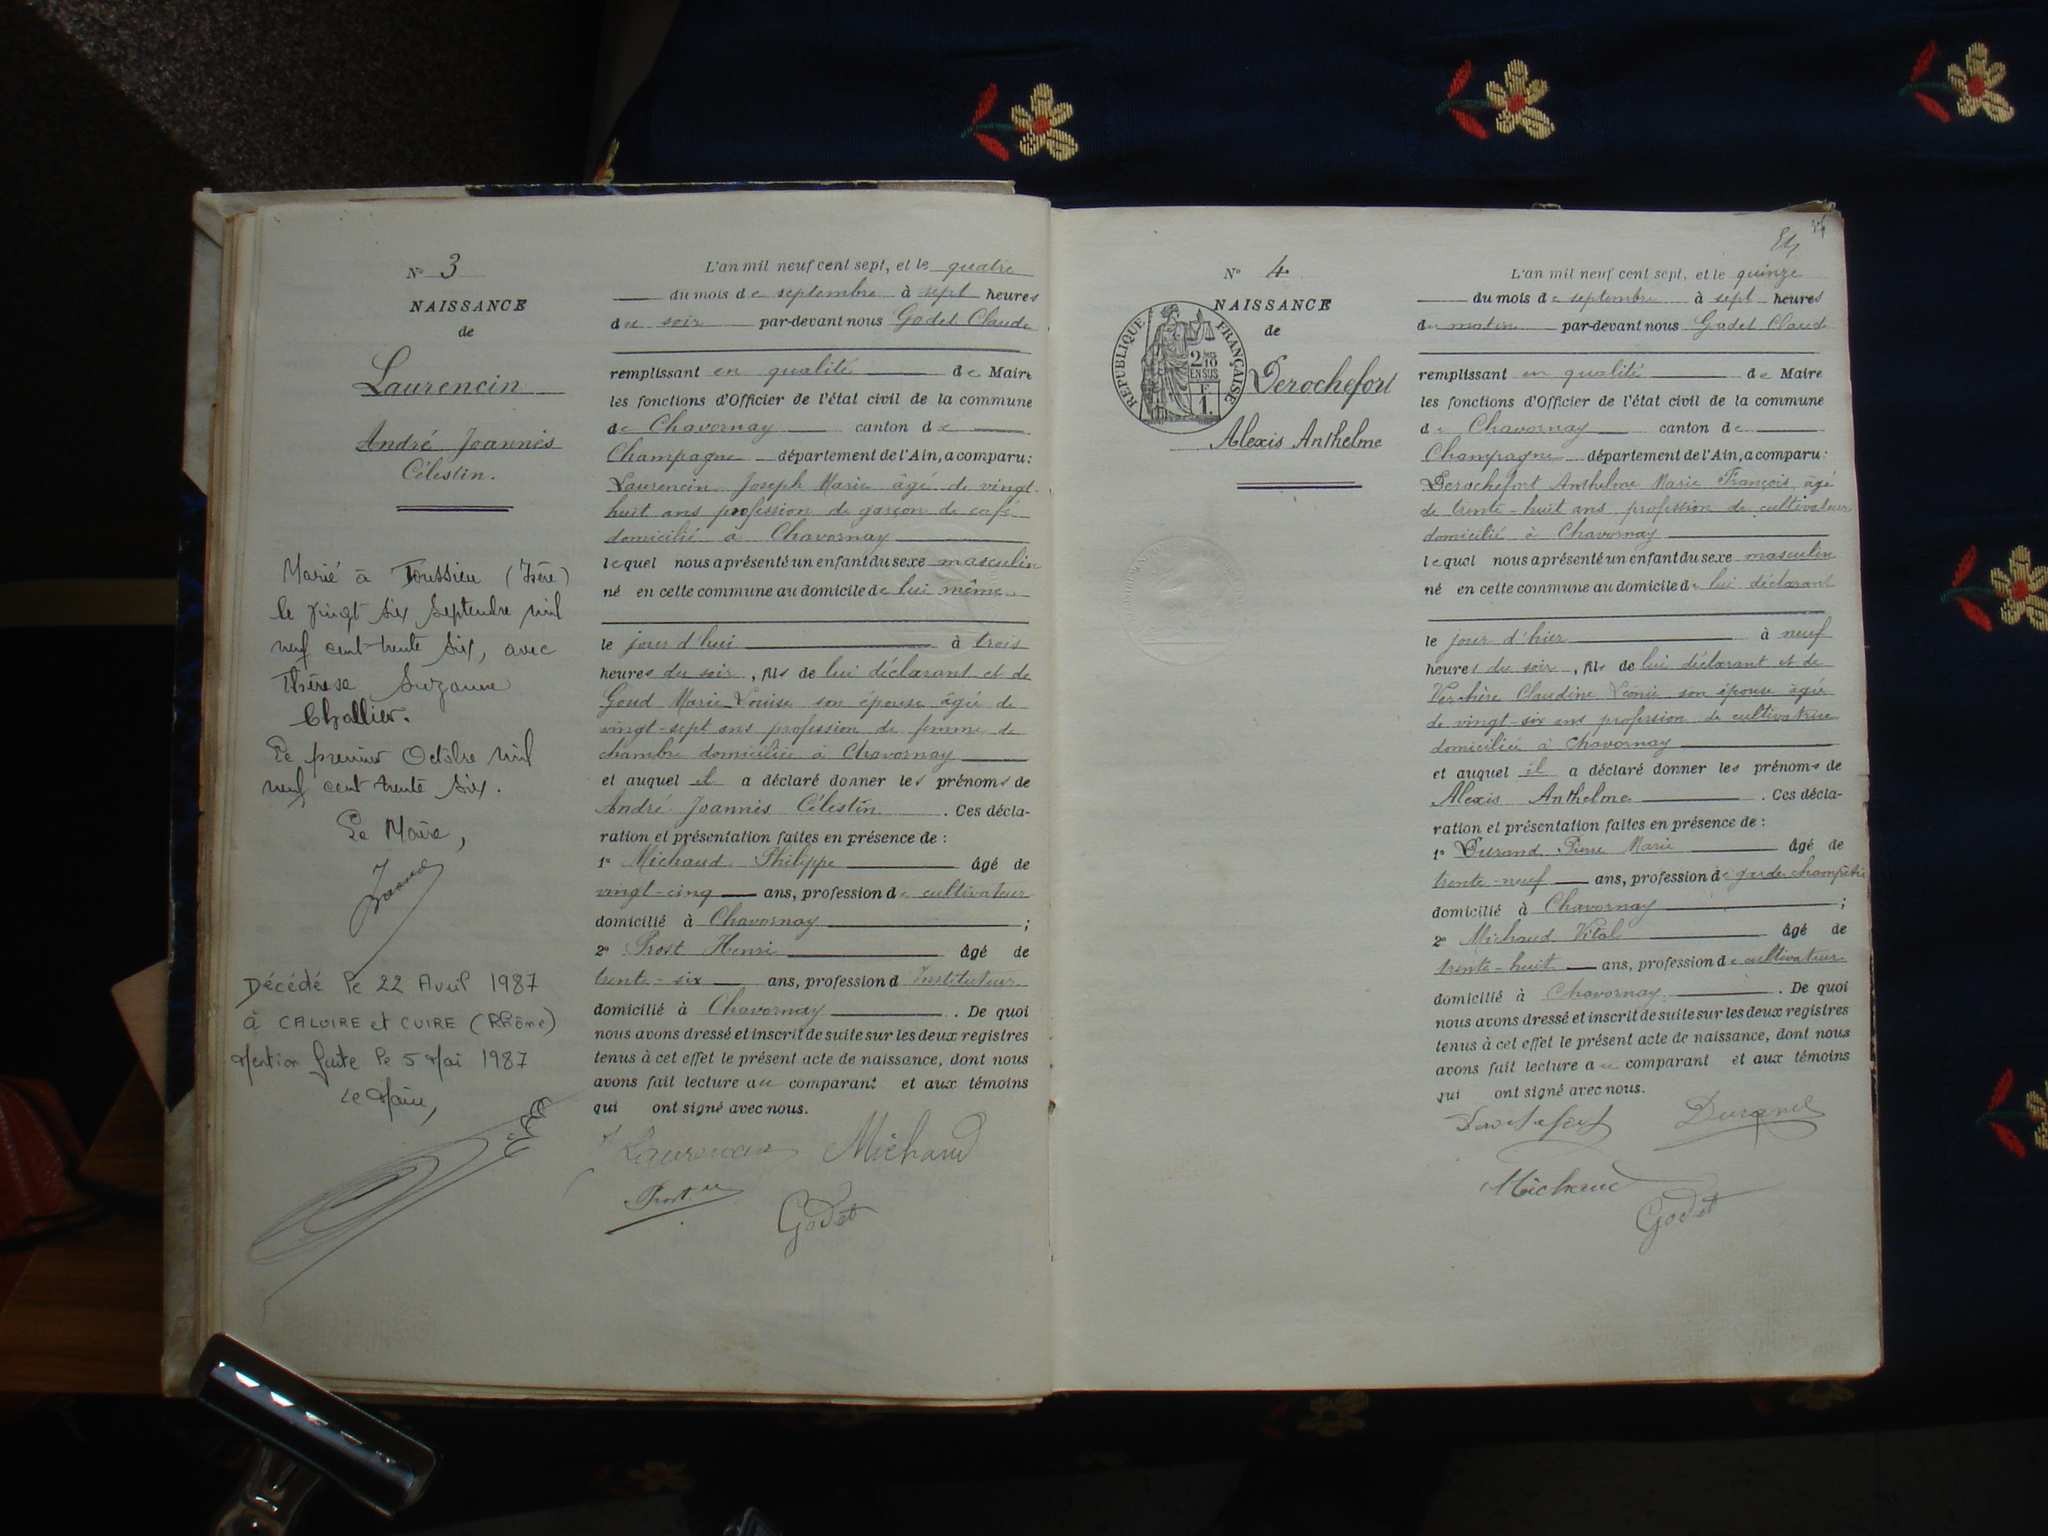 N° 3
NAISSANCE
de
Laurencin
André Joannès
Célestin.
Marié à Toussieu (Isère)
le vingt six Septembre mil
neuf cent trente six, avec
Thérèse Suzanne
Challier.
Le premier Octobre mil
neuf cent trente six.
Le Maire,
Décédé le 22 Avril 1987
à CALUIRE et CUIRE (Rhône)
Mention faite le 5 Mai 1987
Le Maire,
L'an mil neuf cent sept, et le quatre
du mois de septembre à sept heures
du soir par-devant nous Godet Claude
remplissant en qualité de Maire
les fonctions d'Officier de l'état civil de la commune
de Chavornay canton de
Champagne département de l'Ain, a comparu :
Laurencin Joseph Marie âgé de vingt-
huit ans profession de garçon de café
domicilié à Chavornay
lequel nous a présenté un enfant du sexe masculin
né en cette commune au domicile de lui même
le jour d'hui à trois
heures du soir, fils de lui déclarant et de
Goud Marie Louise son épouse âgée de
vingt-sept ans profession de femme de
chambre domiciliée à Chavornay
et auquel il a déclaré donner les prénoms de
André Joannès Célestin. Ces décla-
ration et présentation faites en présence de :
1° Michaud Philippe âgé de
vingt-cinq ans, profession de cultivateur
domicilié à Chavornay ;
2° Prost Henri âgé de
trente-six ans, profession d'Instituteur
domicilié à Chavornay. De quoi
nous avons dressé et inscrit de suite sur les deux registres
tenus à cet effet le présent acte de naissance, dont nous
avons fait lecture au comparant et aux témoins
qui ont signé avec nous.
Laurencin Michaud
Prost Godet
N° 4
NAISSANCE
de
RÉPUBLIQUE FRANÇAISE
2/10
EN SUS
F
1.
Derochefort
Alexis Anthelme
L'an mil neuf cent sept, et le quinze
du mois de septembre à sept heures
du matin par-devant nous Godet Claude
remplissant en qualité de Maire
les fonctions d'Officier de l'état civil de la commune
de Chavornay canton de
Champagne département de l'Ain, a comparu :
Derochefort Anthelme Marie François âgé
de trente-huit ans profession de cultivateur
domicilié à Chavornay
lequel nous a présenté un enfant du sexe masculin
né en cette commune au domicile de lui déclarant
le jour d'hier à neuf
heures du soir, fils de lui déclarant et de
Verchère Claudine Léonie son épouse âgée
de vingt-six ans profession de cultivatrice
domiciliée à Chavornay
et auquel il a déclaré donner les prénoms de
Alexis Anthelme. Ces décla-
ration et présentation faites en présence de :
1° Durand Pierre Marie âgé de
trente-neuf ans, profession de garde champêtre
domicilié à Chavornay ;
2° Michaud Vital âgé de
trente-huit ans, profession de cultivateur
domicilié à Chavornay. De quoi
nous avons dressé et inscrit de suite sur les deux registres
tenus à cet effet le présent acte de naissance, dont nous
avons fait lecture au comparant et aux témoins
qui ont signé avec nous.
Derochefort Durand
Michaud
Godet